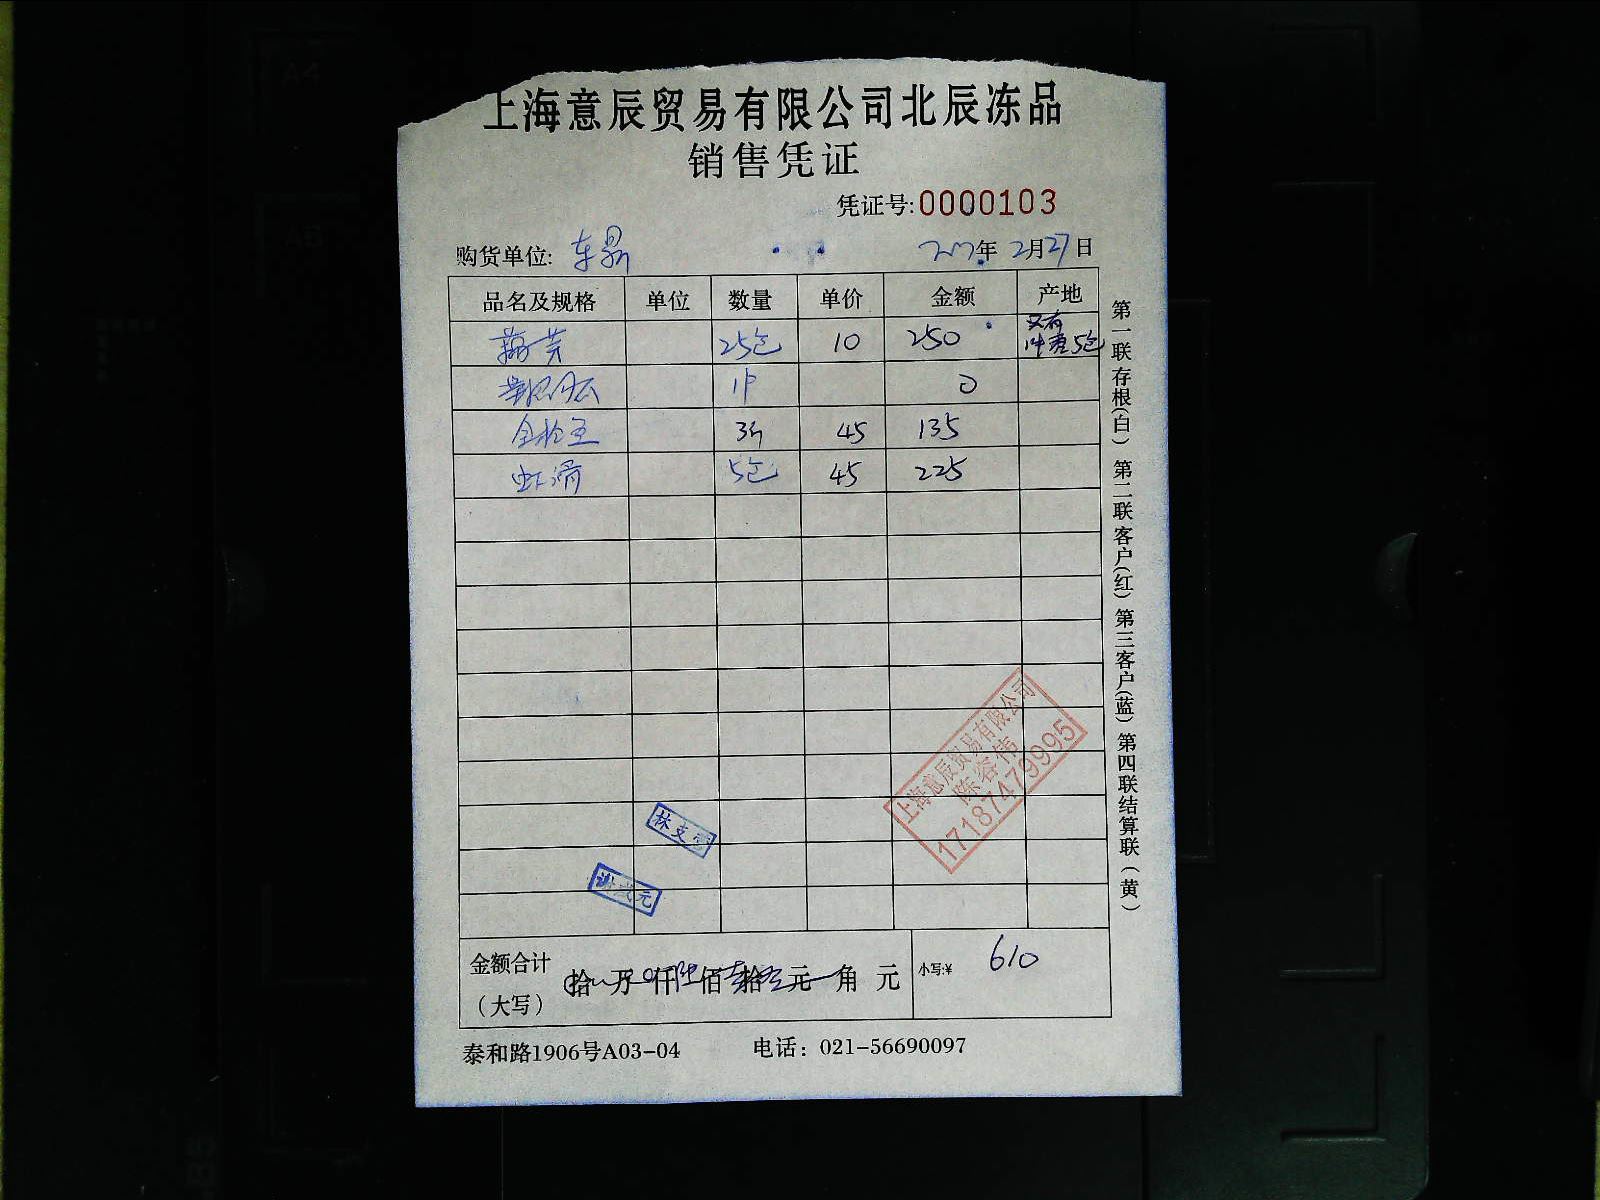 上海意辰贸易有限公司北辰冻品
销售凭证
凭证号:0000103
购货单位: 年 2月27日
品名及规格 单位 数量 单价 金额 产地
25包 10 250 5包
0
45 135
虾滑 5包 45 225
第一联存根(白) 第二联客户(红) 第三客户(蓝) 第四联结算联(黄)
上海意辰贸易有限公司
陈容伟
17187479995
林支
元
金额合计
(大写) 拾 万 仟 佰 拾 元 角 元 小写:¥ 610
泰和路1906号A03-04 电话: 021-56690097